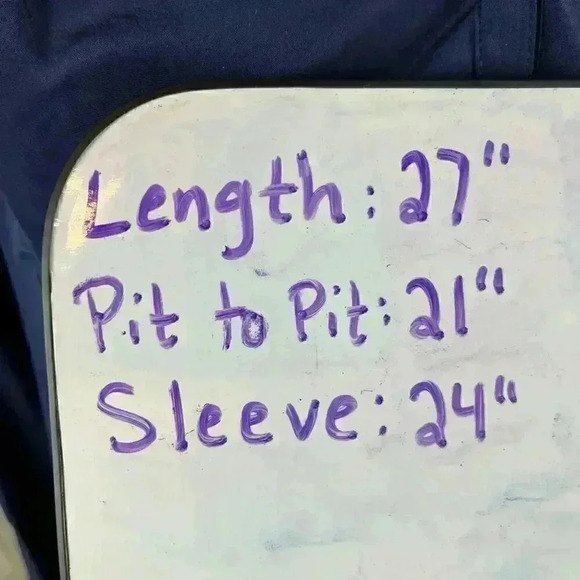 Length: 27"
Pit to Pit: 21"
Sleeve: 24"